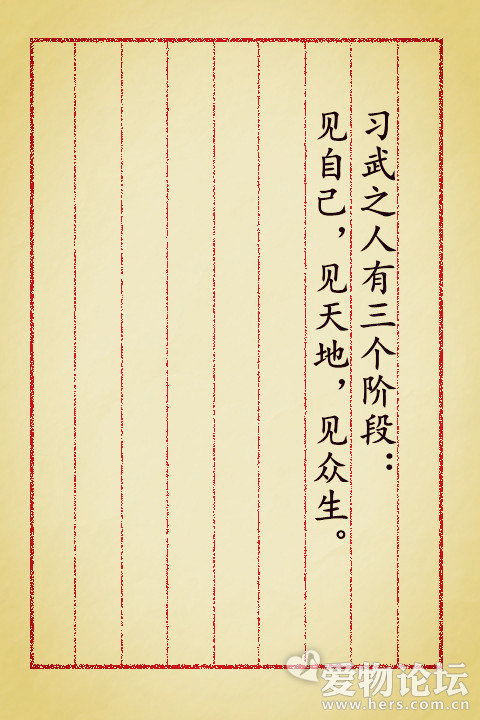 习武之人有三个阶段：
见自己，见天地，见众生。
爱物论坛
www.hers.com.cn